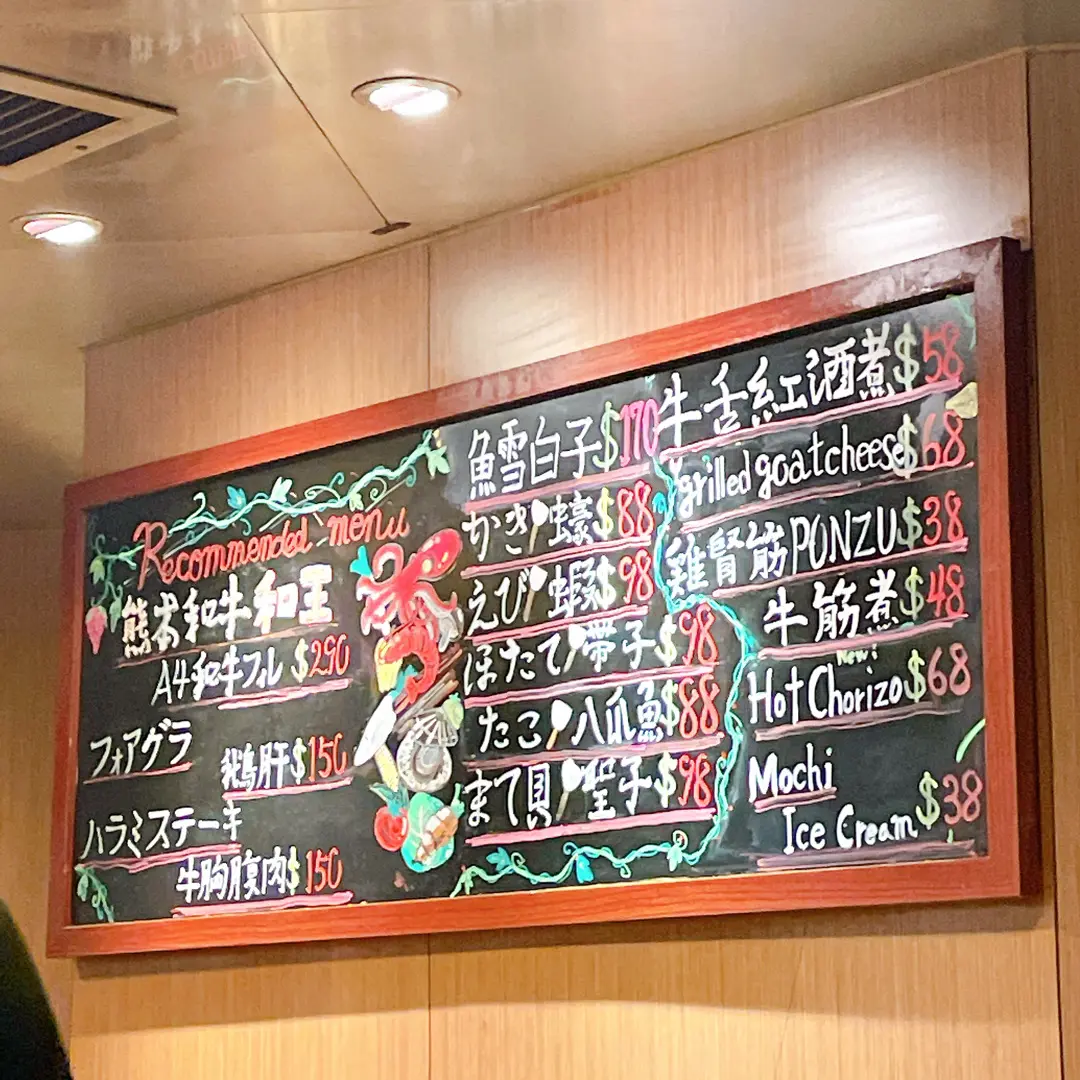 Recommended menu
熊本和牛和王
A4和牛フル $290
フォアグラ
鵝肝$150
ハラミステーキ
牛胸腹肉$150
魚雪白子$170
かき 蠔$88
えび 蝦$98
ほたて 帶子$98
たこ 八爪魚$88
まて貝 聖子$98
牛舌紅酒煮$58
grilled goat cheese$68
雞腎筋PONZU$38
牛筋煮$48
New!
Hot Chorizo$68
Mochi
Ice Cream $38